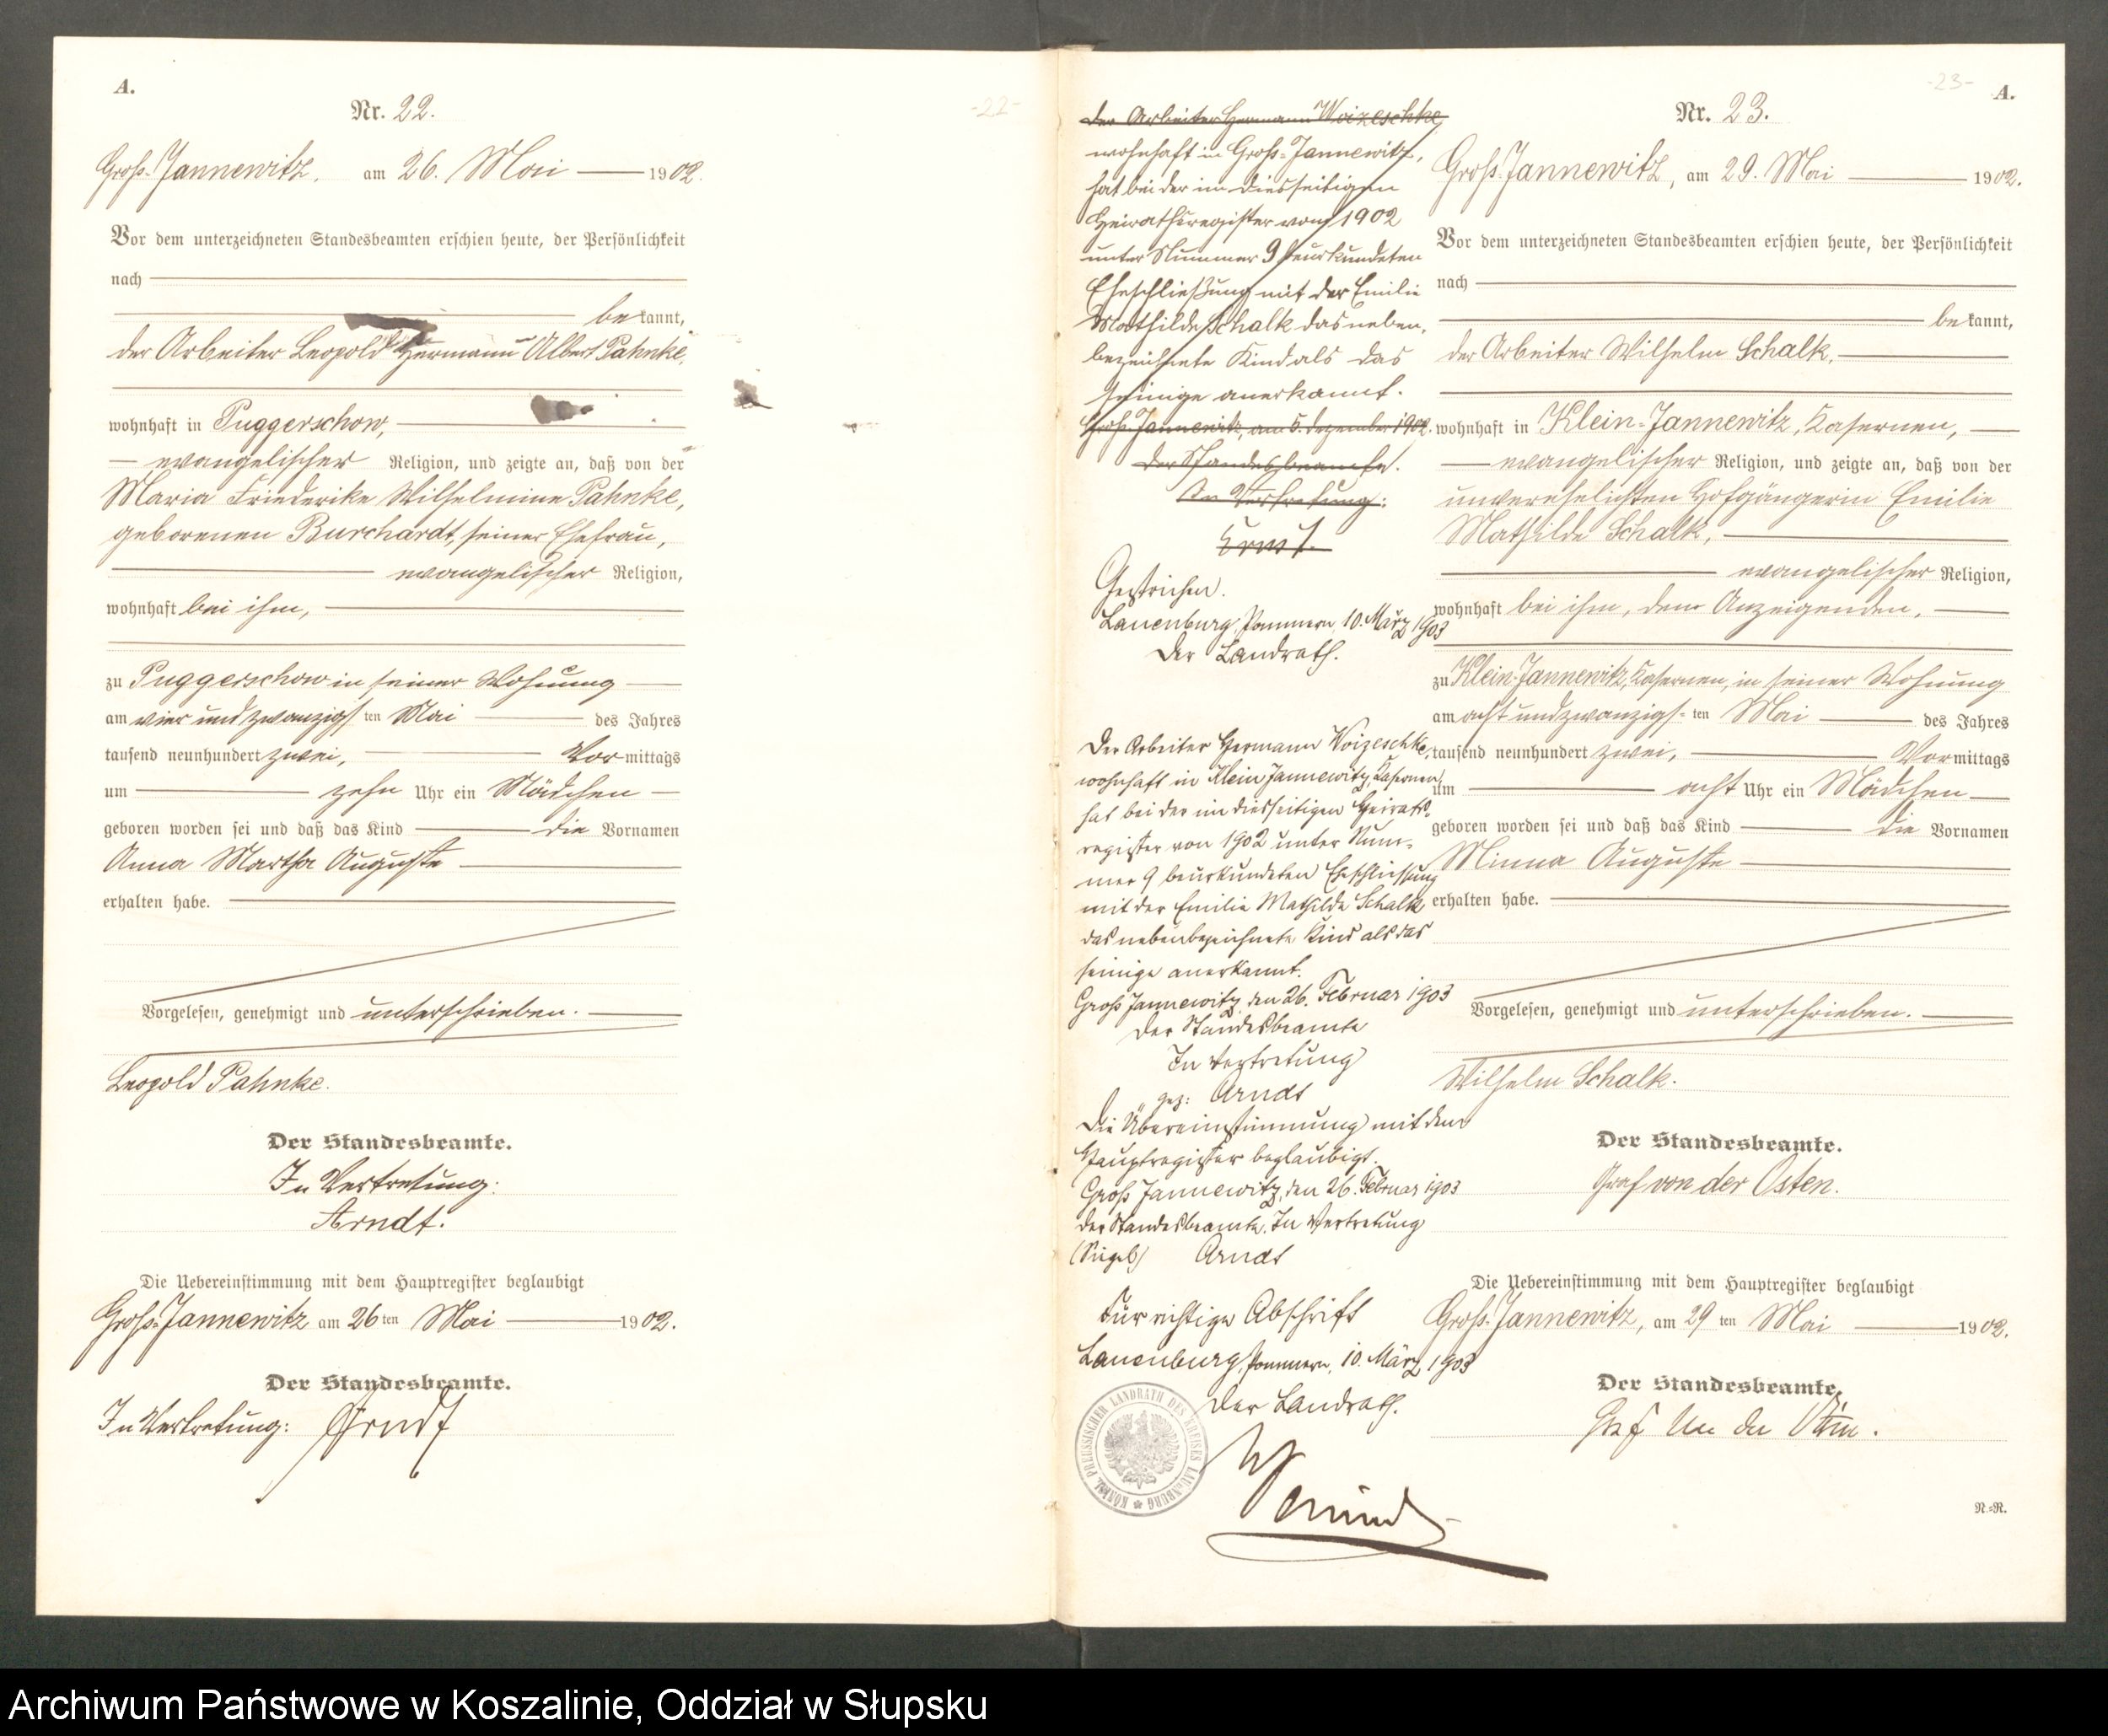 A.
Nr. 22.
-22-
Groß-Jannewitz, am 26. Mai 1902.
Vor dem unterzeichneten Standesbeamten erschien heute, der Persönlichkeit
nach
bekannt,
der Arbeiter Leopold Hermann Albert Pahnke,
wohnhaft in Puggerschow,
evangelischer Religion, und zeigte an, daß von der
Maria Friederike Wilhelmine Pahnke,
geborenen Burchardt, seiner Ehefrau,
evangelischer Religion,
wohnhaft bei ihm,
zu Puggerschow in seiner Wohnung
am vier und zwanzigsten Mai des Jahres
tausend neunhundert zwei, Vormittags
um zehn Uhr ein Mädchen
geboren worden sei und daß das Kind die Vornamen
Anna Martha Auguste
erhalten habe.
Vorgelesen, genehmigt und unterschrieben.
Leopold Pahnke.
Der Standesbeamte.
In Vertretung:
Arndt.
Die Uebereinstimmung mit dem Hauptregister beglaubigt
Groß-Jannewitz am 26ten Mai 1902.
Der Standesbeamte.
In Vertretung: Arndt
Der Arbeiter Hermann Woizeschke,
wohnhaft in Groß-Jannewitz,
hat bei der im diesseitigen
Heirathsregister vom 1902
unter Nummer 9 beurkundeten
Eheschließung mit der Emilie
Mathilde Schalk das neben-
bezeichnete Kind als das
seinige anerkannt.
Groß-Jannewitz, am 5. Dezember 1902.
Der Standesbeamte.
In Vertretung:
Gestrichen.
Lauenburg, Pommern, 10. März 1903
Der Landrath.
Der Arbeiter Hermann Woizeschke,
wohnhaft in Klein Jannewitz, Kasernen,
hat bei der im diesseitigen Heirats-
register von 1902 unter Num-
mer 9 beurkundeten Eheschliessung
mit der Emilie Mathilde Schalk
das nebenbezeichnete Kind als das
seinige anerkannt.
Groß Jannewitz, den 26. Februar 1903
Der Standesbeamte
In Vertretung
gez: Arndt
Die Übereinstimmung mit dem
Hauptregister beglaubigt.
Groß Jannewitz, den 26. Februar 1903
Der Standesbeamte. In Vertretung
(Siegel) Arndt
Für richtige Abschrift
Lauenburg, Pommern, 10. März 1903
Der Landrath.
KÖNIGL. PREUSSISCHER LANDRATH DES KREISES LAUENBURG
-23-
A.
Nr. 23.
Groß-Jannewitz, am 29. Mai 1902.
Vor dem unterzeichneten Standesbeamten erschien heute, der Persönlichkeit
nach
bekannt,
der Arbeiter Wilhelm Schalk,
wohnhaft in Klein-Jannewitz, Kasernen,
evangelischer Religion, und zeigte an, daß von der
unverehelichten Hofgängerin Emilie
Mathilde Schalk,
evangelischer Religion,
wohnhaft bei ihm, dem Anzeigenden,
zu Klein-Jannewitz, Kasernen, in seiner Wohnung
am acht und zwanzigsten Mai des Jahres
tausend neunhundert zwei, Vormittags
um acht Uhr ein Mädchen
geboren worden sei und daß das Kind die Vornamen
Minna Auguste
erhalten habe.
Vorgelesen, genehmigt und unterschrieben.
Wilhelm Schalk.
Der Standesbeamte.
Graf von der Osten.
Die Uebereinstimmung mit dem Hauptregister beglaubigt
Groß-Jannewitz, am 29ten Mai 1902.
Der Standesbeamte.
Graf von der Osten.
N.=R.
Archiwum Państwowe w Koszalinie, Oddział w Słupsku